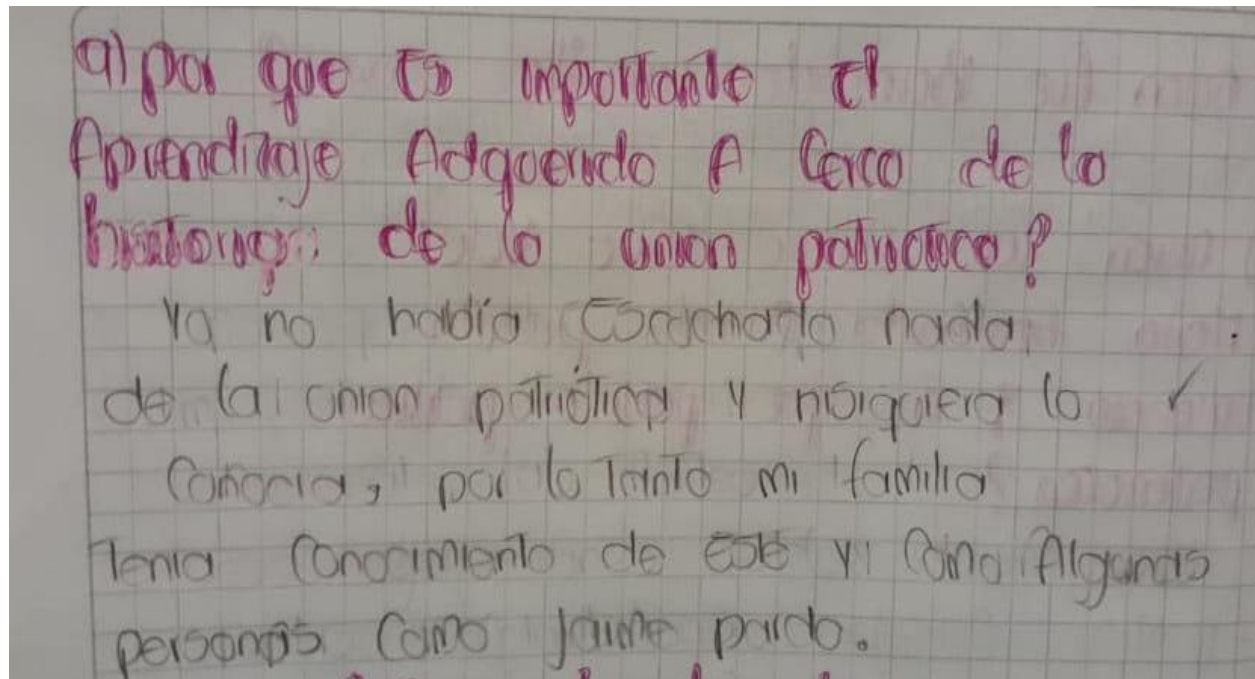 a) por que es importante el
Aprendizaje Adquerido A Cerca de la
historia de la union patriotica?
Yo no había Escuchado nada
de la union patriótica y nisiquiera lo
Conocia, por lo Tanto mi familia
Tenia Conocimiento de Este y Como Algunas
personas Como jaime pardo.